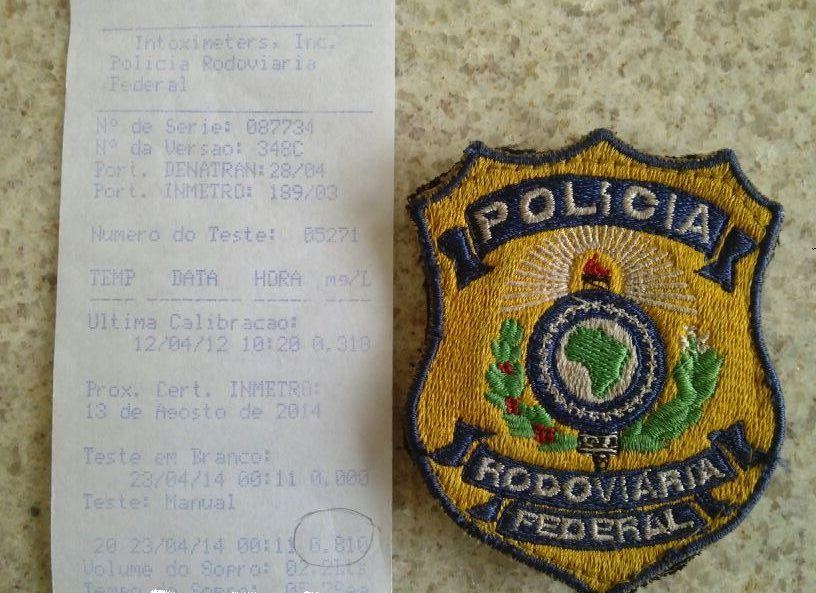 Intoximeters, Inc.
Policia Rodoviaria
Federal
Nº de Serie: 087734
Nº da Versao: 348C
Port. DENATRAN:28/04
Port. INMETRO: 189/03
Numero do Teste: 05271
TEMP DATA HORA mg/L
Ultima Calibracao:
12/04/12 10:20
Prox. Cert. INMETRO:
13 de Agosto de 2014
Teste em Branco:
23/04/14 00:11 0.000
Teste: Manual
20 23/04/14 00:11 0.810
Volume do Sopro:
Tempo do Sopro:
POLÍCIA
RODOVIÁRIA
FEDERAL